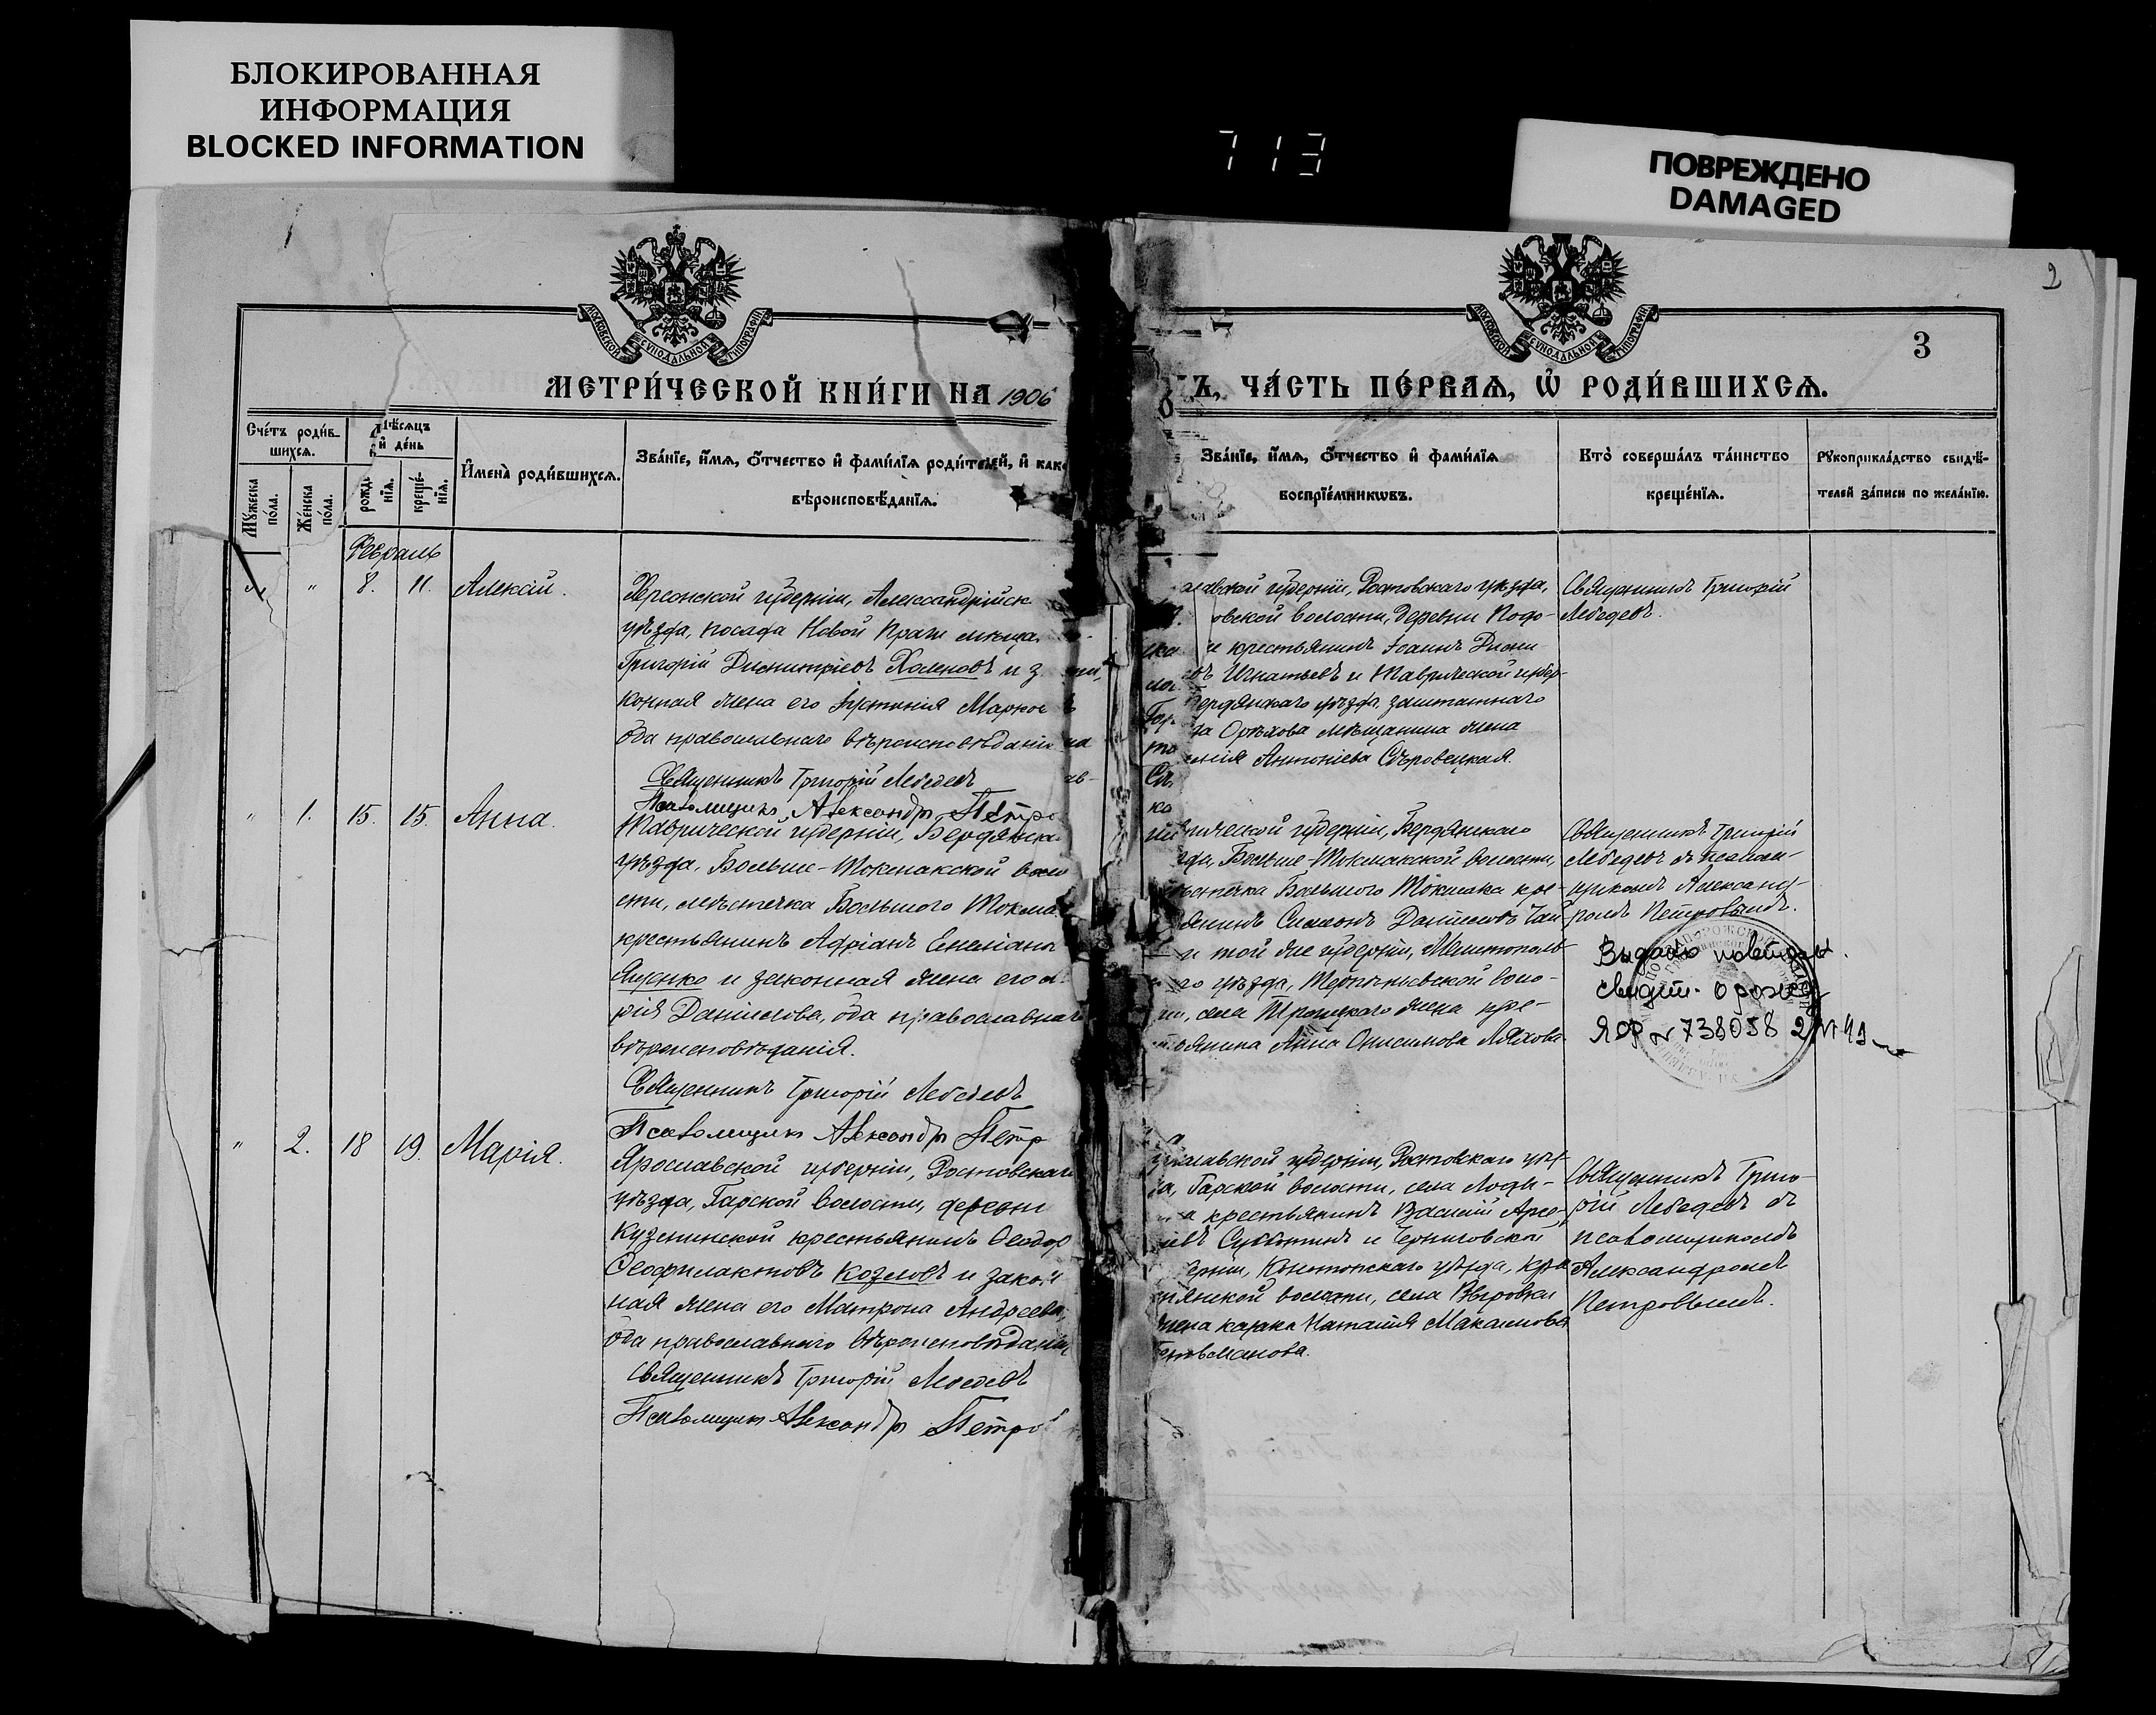 БЛОКИРОВАННАЯ
ИНФОРМАЦИЯ
BLOCKED INFORMATION
713
ПОВРЕЖДЕНО
DAMAGED
2
3
МОСКОВСКОЙ СУНОДАЛЬНОЙ ТИПОГРАФІИ
МОСКОВСКОЙ СУНОДАЛЬНОЙ ТИПОГРАФІИ
МЕТРИ́ЧЕСКОЙ КНИ́ГИ НА 1906
Ъ, ЧА́СТЬ ПЕ́РВАѦ, Ѿ РОДИ́ВШИХСѦ.
Сче́тъ роди́в-
шихсѧ.
Мѣ́сѧцъ
и҆ де́нь
Мꙋ́жеска по́ла.
Же́нска по́ла.
рожде́нїѧ.
креще́нїѧ.
И҆мена̀ роди́вшихсѧ.
Зва́нїе, и҆́мѧ, ѻ҆́тчество и҆ фами́лїѧ роди́телей, и҆ как
вѣроисповѣ́данїѧ.
Зва́нїе, и҆́мѧ, ѻ҆́тчество и҆ фами́лїѧ
воспрїе́мникωвъ.
Кто̀ соверша́лъ та́инство
креще́нїѧ.
Рꙋкоприкла́дство свидѣ́-
телей за́писи по жела́нїю.
Февраль
" 8. 11. Алексій.
Херсонской губерніи, Александрійск
уѣзда, посада Новой Праги мѣща
Григорій Димитріевъ Халеновъ и з
конная жена его Іустинія Марков
оба православнаго вѣроисповѣданія
Священникъ Григорій Лебедевъ
Псаломщикъ Александръ Петро
авской губерніи, Ростовскаго уѣзда,
овской волости, деревни Подо-
и крестьянинъ Іоаннъ Діони
въ Игнатьевъ и Таврической губер-
Бердянскаго уѣзда, заштатнаго
да Орѣхова мѣщанина жена
Антоніева Съровецкая.
Священникъ Григорій
Лебедевъ.
" 1. 15. 15. Анна.
Таврической губерніи, Бердянска
уѣзда, Больше-Токмакской воло
сти, мѣстечка Большого Токма
крестьянинъ Адріанъ Емеліано
Яценко и законная жена его М
рія Даніилова, оба православнаг
вѣроисповѣданія.
Священникъ Григорій Лебедевъ
Псаломщикъ Александръ Петр
рической губерніи, Бердянскаго
да, Больше-Токмакской волости,
стечка Большого Токмака кре-
янинъ Симеонъ Даніиловъ
и той же губерніи, Мелитополь
го уѣзда, Терпѣньевской воло-
ти, села Троицкаго жена кре-
тьянина Анна Онисимова Ляхова
Священникъ Григорій
Лебедевъ съ псалом-
щикомъ Александ-
ромъ Петровымъ.
Видано повторн.
свидет. о рожд
ЯФ № 738058
" 2. 18 19. Марія.
Ярославской губерніи, Ростовскаго
уѣзда, Гарской волости, деревни
Кузминской крестьянинъ Ѳеодор
Ѳеофилактовъ Козловъ и закон
ная жена его Матрона Андреева,
оба православнаго вѣроисповѣданія
Священникъ Григорій Лебедевъ
Псаломщикъ Александръ Петро
рославской губерніи, Ростовскаго уѣз-
а, Гарской волости, села Лоды-
а крестьянинъ Василій Арсе
іевъ Субботинъ и Черниговской
ерніи, Конотопскаго уѣзда,
янской волости, села
жена казака Наталія Максимова
Священникъ Григо-
рій Лебедевъ съ
псаломщикомъ
Александромъ
Петровымъ.